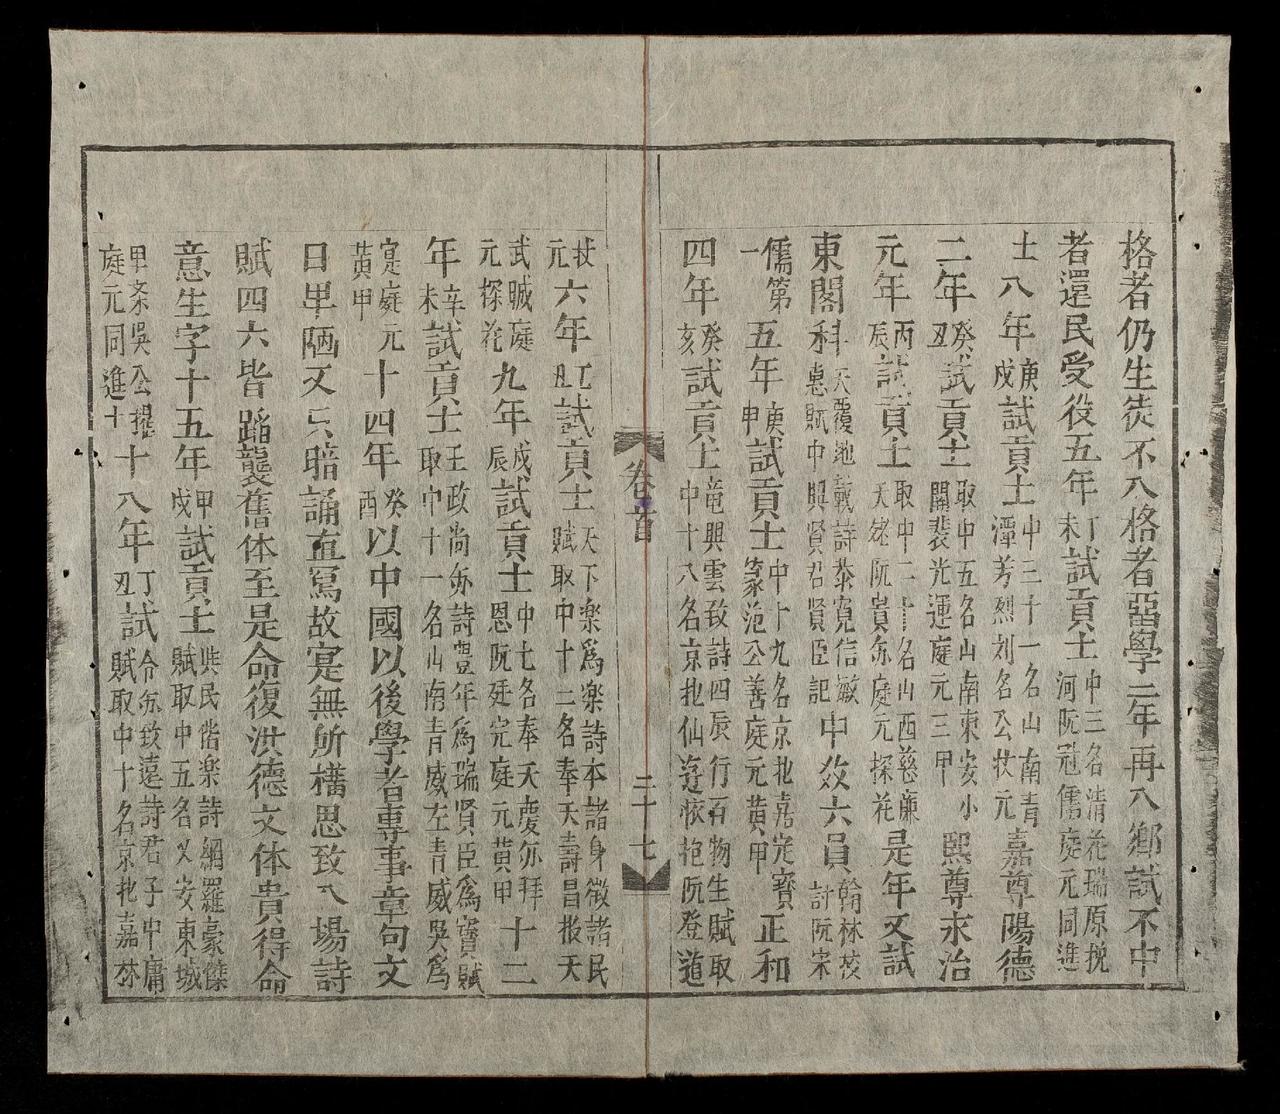 格者仍生徒不入格者啚學二年再入鄉試不中
者還民受役五年丁未試貢士中三名清花瑞原挽河阮冠儒庭元同進
士八年庚戌試貢士中三十一名山南青潭芳烈刘名公状元嘉尊陽德
二年癸丑試貢士取中五名山南東安小關裴光運庭元三甲熙尊永治
元年丙辰試貢士取中二十名山西慈廉天姥阮貴弥庭元探花是年又試
東閣科天覆地載詩恭寬信敏惠賦中興賢君賢臣記中癹六員翰林校討阮宋
儒第一五年庚申試貢士中十九名京北嘉定寶篆范公善庭元黄甲正和
四年癸亥試貢士竜興雲致詩四辰行百物生賦取中十八名京北仙遊恢抱阮登道
卷首 二十七
状元六年乙丑試貢士天下樂為樂詩本諸身徵諸民賦取中十二名奉天壽昌報天
武晠庭元探花九年戊辰試貢士中七名奉天慶弥拜恩阮廷完庭元黄甲十二
年辛未試貢士王政尚弥詩豊年為瑞賢臣為寶賦取中十一名山南青威左青威吳為
寔庭元黄甲十四年癸酉以中國以後學者專事章句文
日卑陋又只暗誦直寫故寔無所構思致入場詩
賦四六皆蹈襲舊体至是命復洪德文体貴得命
意生字十五年甲戌試貢士與民偕樂詩網羅豪傑賦取中五名乂安東城
甲条吳公擢庭元同進士十八年丁丑試令弥致遠詩君子中庸賦取中十名京北嘉林